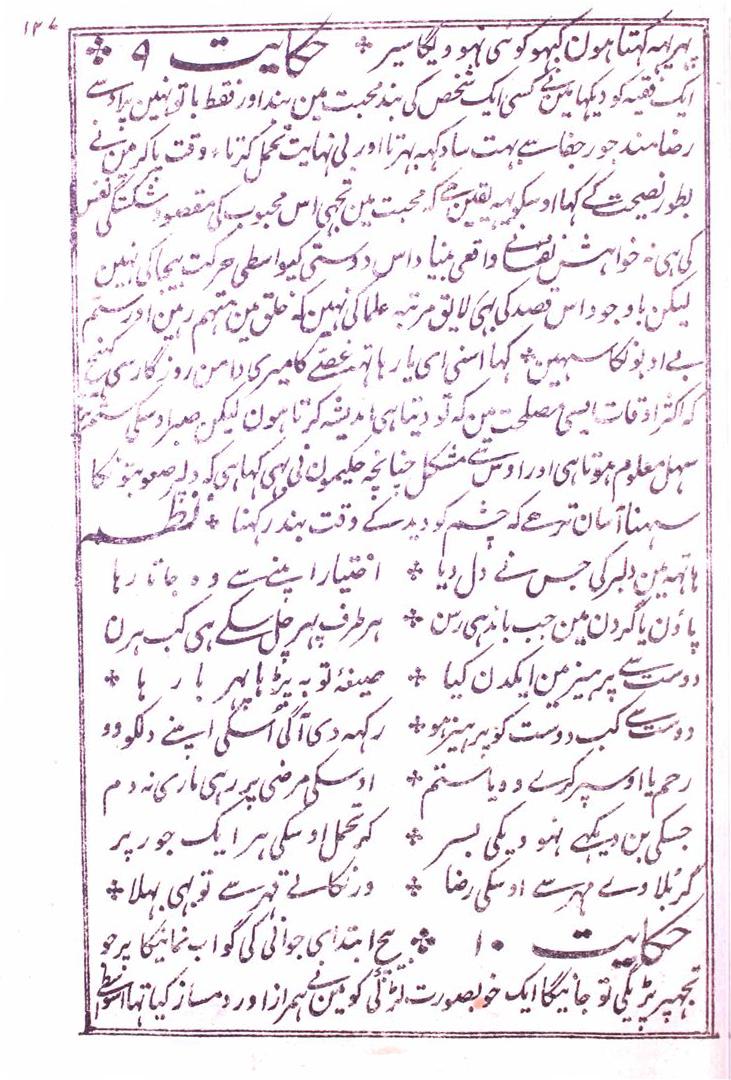 ۱۲۷
پہر یہہ کہتا ہون کبہو کوئی نہو ویگا سیر ❖ حکایت ۹ ❖
ایک فقیہ کو دیکہا مین نے کسی ایک شخص کی بند محبت مین بند اور فقط باتو نہین
رضامند جور جفا سے بہت سا دکہہ بہرتا اور بی نہایت تحمل کرتا ٭ وقت پا کر مین نے
بطور نصیحت کے کہا اوسکو یہہ یقین ہے کہ محبت مین تجہی اس محبوب کی مقصود شکستگی نفس
کی ہی نہ خواہش نفسانے واقعی بنیاد اس دوستی کیواسطی حرکت بیجا کی نہین
لیکن باوجود اس قصد کی بہی لایق مرتبہ علما کی نہین کہ خلق مین متہم رہین اور ستم
بے ادبونکا سہین ❖ کہا اسنی ای یار ہاتہہ غصّے کا میری دامن روزگار سی کہنچ
کہ اکثر اوقات ایسی مصلحت مین کہ تو دیتا ہی اندیشہ کرتا ہون لیکن صبر اوسکی ستم پر
سہل معلوم ہوتا ہی اور اوس سے مشکل چنانچہ حکیمون نی بہی کہا ہی کہ دلپر صعوبتونکا
سہنا آسان تر ہے کہ چشم کو دید کے وقت بند رکہنا ❖ نظم
ہاتہہ مین دلبر کی جس نے دل دیا ❖ اختیار اپنے سے وہ جاتا رہا
پاؤن یا گردن مین جب باندہی رسن ❖ ہر طرف پہر چل سکے ہی کب ہرن
دوست سے پرہیز مین ایکدن کیا ❖ صیغۂ توبہ پڑہا پہر بارہا ❖
دوست سے کب دوست کو پرہیز ہو ❖ رکہہ دی آگی اُسکی اپنے دلکو وو
رحم یا اوسپر کرے وو یا ستم ❖ اوسکی مرضی پر رہی ماری نہ دم
جسکی بن دیکہے نہو ویکی بسر ❖ کر تحمل اوسکی ہر ایک جور پر
گر بُلا دے مہر سے اوسکی رضا ❖ ور نکالے قہر سے تو بہی بہلا ❖
حکایت ۱۰ ❖ بیچ ابتدای جوانی کی گو اب نمانیگا پر جو
تجہپر پڑیگی تو جانیگا ایک خوبصورت لڑکی کو مین نے ہمراز اور دمساز کیا تہا اسواسطے